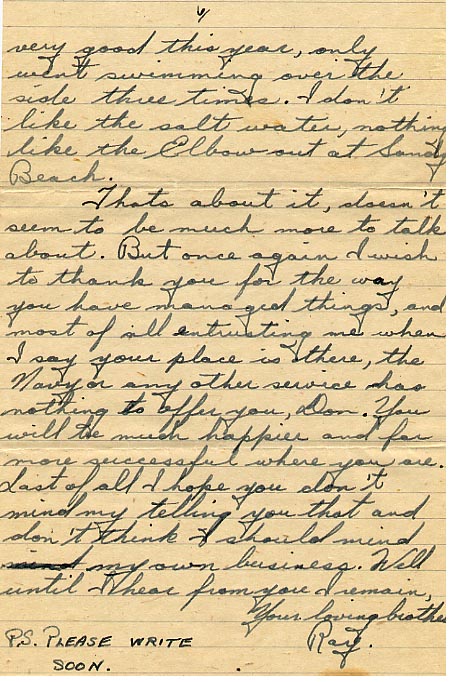 6/
very good this year, only
went swimming over the
side three times. I don't
like the salt water, nothing
like the Elbow out at Sandy
Beach.
Thats about it, doesn't
seem to be much more to talk
about. But once again I wish
to thank you for the way
you have managed things, and
most of all entrusting me when
I say your place is there, the
Navy or any other service has
nothing to offer you, Don. You
will be much happier and far
more successful where you are.
Last of all I hope you don't
mind my telling you that and
don't think I should mind
my own business. Well
until I hear from you I remain,
Your loving brother
Ray.
P.S. PLEASE WRITE
SOON.